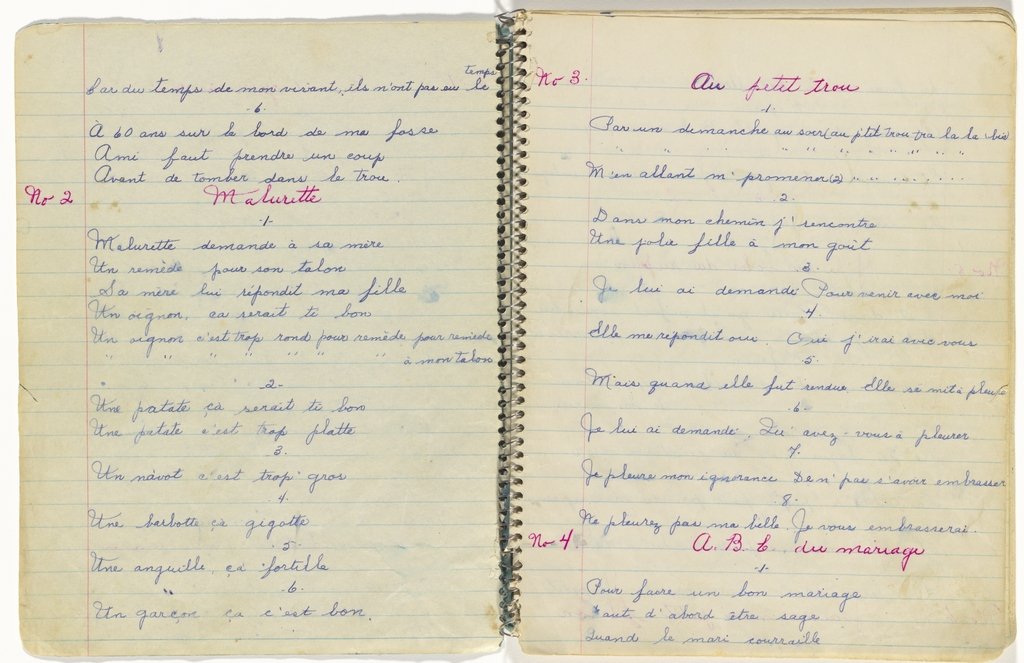 Car du temps de mon vivant, ils n'ont pas eu le temps
6.
À 60 ans sur le bord de ma fosse
Ami faut prendre un coup
Avant de tomber dans le trou.
No 2 Malurette
1-
Malurette demande à sa mère
Un remède pour son talon
Sa mère lui répondit ma fille
Un oignon, ça serait ti bon
Un oignon c'est trop rond pour remède, pour remède
" " " " " " " à mon talon
2-
Une patate ça serait ti bon
Une patate c'est trop platte
3.
Un navot c'est trop gros
4.
Une barbotte ça gigotte
5-
Une anguille, ça fortille
6.
Un garçon ça c'est bon.
No 3. Au petit trou
1-
Par un demanche au soir (au ptit trou tra la la (bis
" " " " " " " " "
M'en allant m' promener (2) " " " " "
2.
Dans mon chemin j' rencontre
Une jolie fille à mon goût
3.
Je lui ai demandé Pour venir avec moi
4.
Elle me répondit oui. Oui j'irai avec vous
5.
Mais quand elle fut rendue. Elle se mit à pleurer
6.
Je lui ai demandé. Qu' avez-vous à pleurer
7.
Je pleure mon ignorance De n' pas s'avoir embrasser
8.
Ne pleurez pas ma belle. Je vous embrasserai.
No 4 A. B. C. du mariage
1-
Pour faire un bon mariage
Faut d'abord être sage
Quand le mari courraille